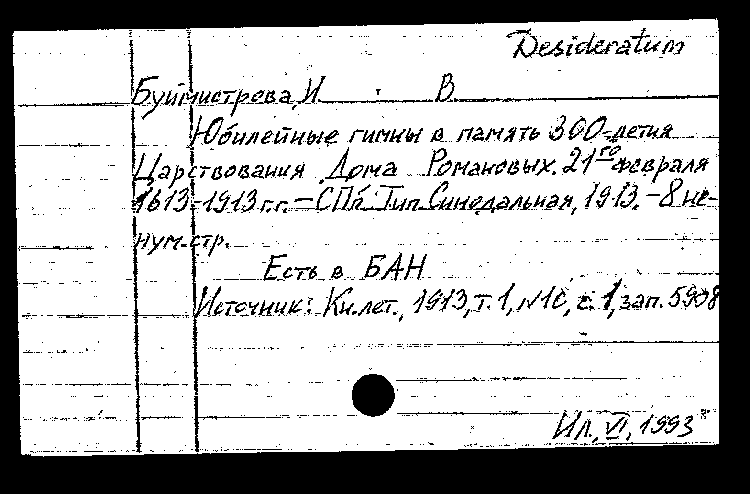 Desideratum
Буймистрова, И. В.
Юбилейные гимны в память 300-летия
Царствования Дома Романовых. 21го февраля
1613-1913 г.г. - СПб: Тип. Синодальная, 1913. - 8 не-
нум. стр.
Есть в БАН
Источник: Кн. лет., 1913, т. 1, №10, с. 1, зап. 5908
Ил., VI, 1993